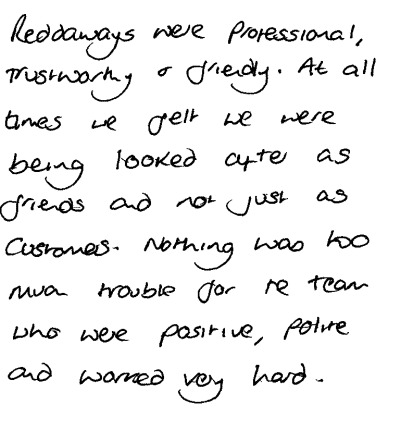 Reddaways were Professional,
Trustworthy & friendly. At all
times we felt we were
being looked after as
friends and not just as
Customers. Nothing was too
much trouble for the team
who were positive, polite
and worked very hard.